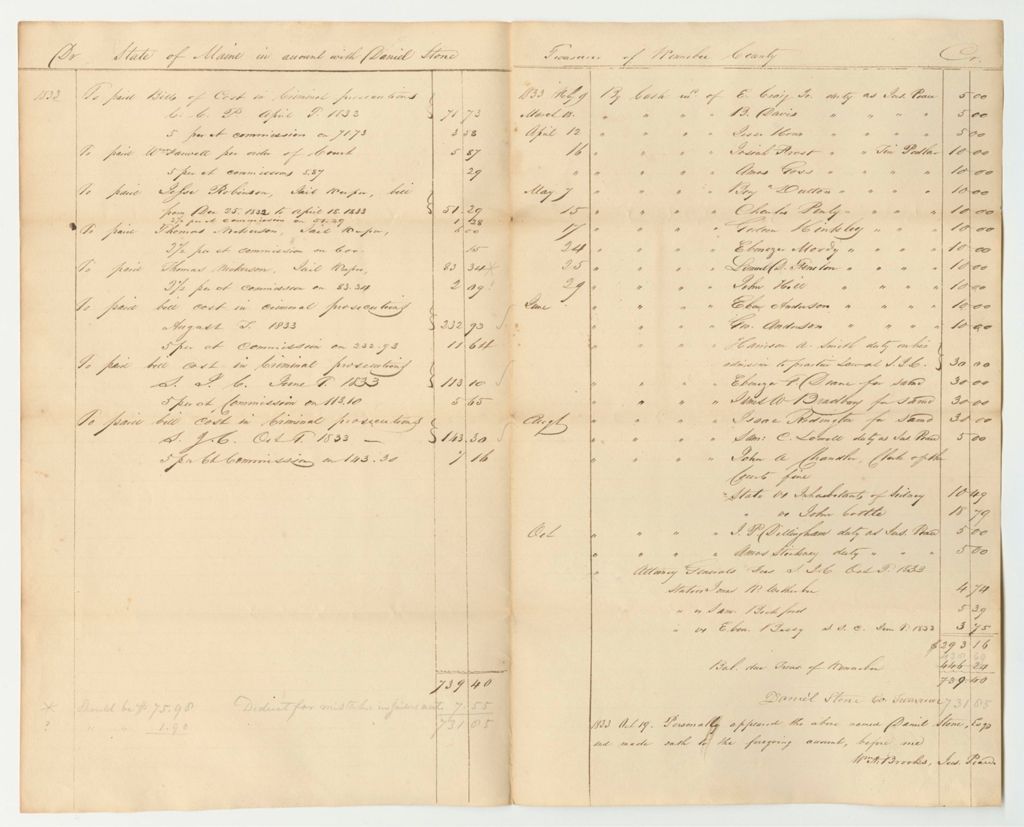 Dr State of Maine in account with Daniel Stone
1833 To paid Bills of Cost in Criminal prosecutions
C. C. P. April T. 1833 71 73
5 per ct commission on 71 73 3 58
To paid Wm Farwell per order of Court 5 87
5 per ct commissions 5.87 29
To paid Jesse Robinson, Jail Keeper, bill
from Dec 25. 1832 to April 12. 1833 51 29
2½ per ct commission on 51.29 1 28
To paid Thomas Nickerson, Jail Keeper, 6 00
2½ per ct commission on 6.00 15
To paid Thomas Nickerson, Jail Keeper, 83 34 *
2½ per ct commission on 83.34 2 09
To paid bill cost in criminal prosecutions
August T. 1833 232 93
5 per ct Commission on 232.93 11 64
To paid bill cost in Criminal prosecutions
S. J. C. June T. 1833 113 10
5 per ct Commission on 113.10 5 65
To paid bill cost in Criminal prosecutions
S. J. C. Oct T. 1833 143 30
5 per Ct Commission on 143.30 7 16
739 40
* Should be $ 75.98 Deduct for mistake in 7 55
1.90 731 85
Treasurer of Kennebec County Cr.
1833 Feby 9 By Cash of E. Craig Jr. duty as Jus. Peace 5 00
March 18 " " " B. Davis " " " 5 00
April 12 " " " Jesse " " " 5 00
16 " " " Josiah " " Tin Pedlar 10 00
" " " " Amos Goss " " 10 00
May 7 " " " Benj Dutton " " 10 00
15 " " " Charles " " 10 00
17 " " " Hinkley " " 10 00
24 " " " Ebenezer Moody " " 10 00
25 " " " Lemuel D. " " 10 00
29 " " " John Hill " " 10 00
June " " " Eben Anderson " " 10 00
" " " Geo. Anderson " " 10 00
" " " Harrison A. Smith duty on his
admission to practice Law at S.J.C. 30 00
" " " Ebenezer F. Deane for same 30 00
" " " James W. Bradbury for same 30 00
Augt " " " Isaac Redington for same 30 00
" " " Saml C. Lowell duty as Jus. Peace 5 00
" " " John A. Chandler, Clerk of the
Courts fine
State vs Inhabitants of Sidney 10 49
" vs John 18 79
Oct " " " J. P. Dillingham duty as Jus. Peace 5 00
" " " Amos Stickney duty " " 5 00
" Attorney Generals fees S. J. C. Oct T. 1833
State vs Jona W. 4 74
" vs Sam. Bickford 5 39
" vs Eben. S. J. C. June T. 1833 3 75
$293 16
Bal. due Treas of Kennebec 446 24
739 40
Daniel Stone Co. Treasurer 731 85
1833 Oct 19. Personally appeared the above named Daniel Stone, Esqr
and made oath to the foregoing account, before me
Wm A. Brooks, Jus. Peace